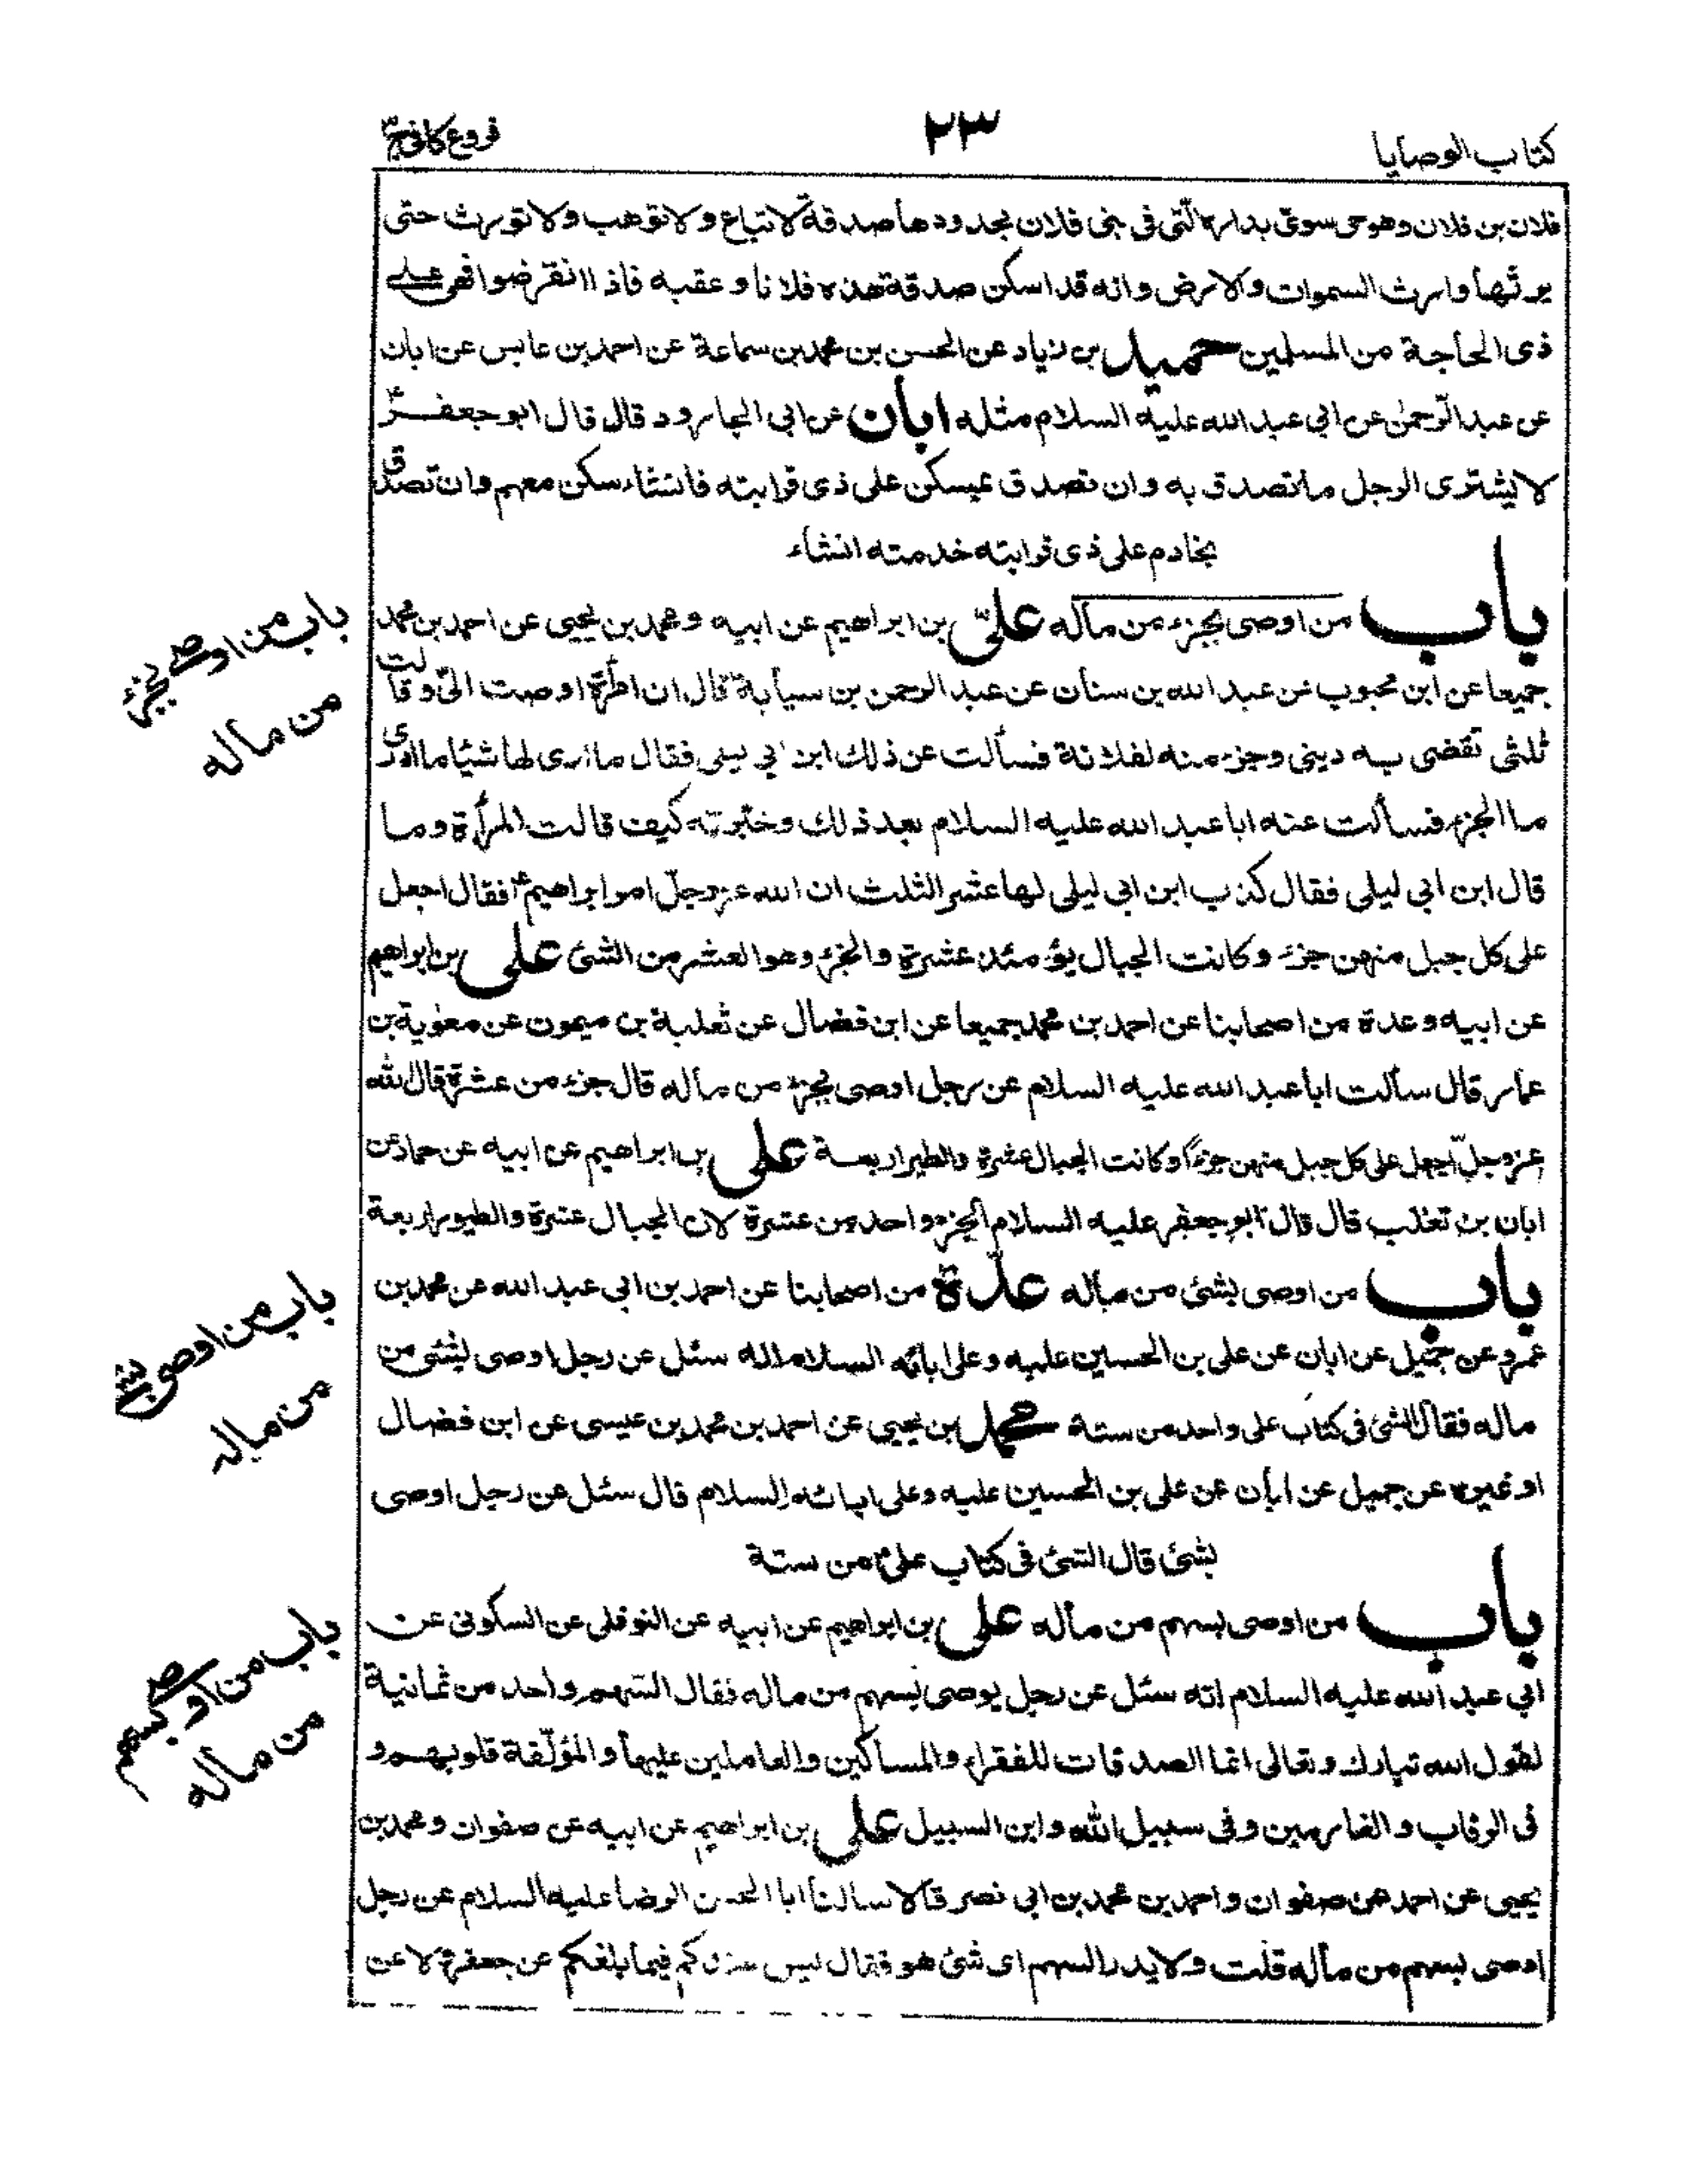 كتاب الوصايا
٢٣
فروع كافى ج٣
فلان بن فلان وهو حى سوى بداره الّتى فى بنى فلان بحدودها صدقة لا تباع ولا توهب ولا تورث حتى
يرثها وارث السموات والارض وانه قد اسكن صدقة هذه فلانا وعقبه فاذا انقرضوا فهى على
ذى الحاجة من المسلمين حميد بن زياد عن الحسن بن محمد بن سماعة عن احمد بن عابس عن ابان
عن عبد الرّحمن عن ابى عبد الله عليه السلام مثله ابان عن ابى الجارود قال قال ابو جعفر ع
لا يشترى الرجل ما تصدق به وان تصدق بمسكن على ذى قرابته فانشاء سكن معهم وان تصدق
بخادم على ذى قرابته خدمته انشاء
باب من اوصى بجزء من ماله علىّ بن ابراهيم عن ابيه ومحمد بن يحيى عن احمد بن محمد
جميعا عن ابن محبوب عن عبد الله بن سنان عن عبد الرحمن بن سيابة قال ان امرأة اوصت الىّ وقالت
ثلثى تقضى به دينى وجزء منه لفلانة فسألت عن ذلك ابن ابى ليلى فقال ما ارى لها شئيا ما ادرى
ما الجزء فسألت عنه ابا عبد الله عليه السلام بعد ذلك وخبّرته كيف قالت المرأة وما
قال ابن ابى ليلى فقال كذب ابن ابى ليلى لها عشر الثلث ان الله عز وجلّ امر ابراهيم ع فقال اجعل
على كل جبل منهن جزء وكانت الجبال يؤمئذ عشرة والجزء وهو العشر من الشئ على بن ابراهيم
عن ابيه وعدة من اصحابنا عن احمد بن محمد جميعا عن ابن فضال عن ثعلبة بن ميمون عن معوية بن
عمار قال سألت ابا عبد الله عليه السلام عن رجل اوصى بجزء من ماله قال جزء من عشرة قال الله
عز وجلّ اجعل على كل جبل منهن جزءًا وكانت الجبال عشرة والطير اربعة على بن ابراهيم عن ابيه عن حماد عن
ابان بن تغلب قال قال ابو جعفر عليه السلام الجزء واحد من عشرة لان الجبال عشرة والطيور اربعة
باب من اوصى بشئ من ماله عدّة من اصحابنا عن احمد بن ابى عبد الله عن محمد بن
عمرو عن جميل عن ابان عن على بن الحسين عليه وعلى ابائه السلام انه سئل عن رجل اوصى بشئ من
ماله فقال الشئ فى كتاب على واحد من ستة محمد بن يحيى عن احمد بن محمد بن عيسى عن ابن فضال
او غيره عن جميل عن ابان عن على بن الحسين عليه وعلى ابائه السلام قال سئل عن رجل اوصى
بشئ قال الشئ فى كتاب علىّ من ستة
باب من اوصى بسهم من ماله على بن ابراهيم عن ابيه عن النوفلى عن السكونى عن
ابى عبد الله عليه السلام انه سئل عن رجل يوصى بسهم من ماله فقال السّهم واحد من ثمانية
لقول الله تبارك وتعالى انما الصدقات للفقراء والمساكين والعاملين عليها والمؤلّفة قلوبهم و
فى الرقاب والغارمين وفى سبيل الله وابن السبيل على بن ابراهيم عن ابيه عن صفوان ومحمد بن
يحيى عن احمد عن صفوان واحمد بن محمد بن ابى نصر قالا سالنا ابا الحسن الرضا عليه السلام عن رجل
اوصى بسهم من ماله قلت ولا يدر السهم اى شئ هو فقال ليس عندكم فيما بلغكم عن جعفر ع لا عن
باب من اوصى بجزء
من ماله
باب من اوصى بشئ
من ماله
باب من اوصى بسهم
من ماله